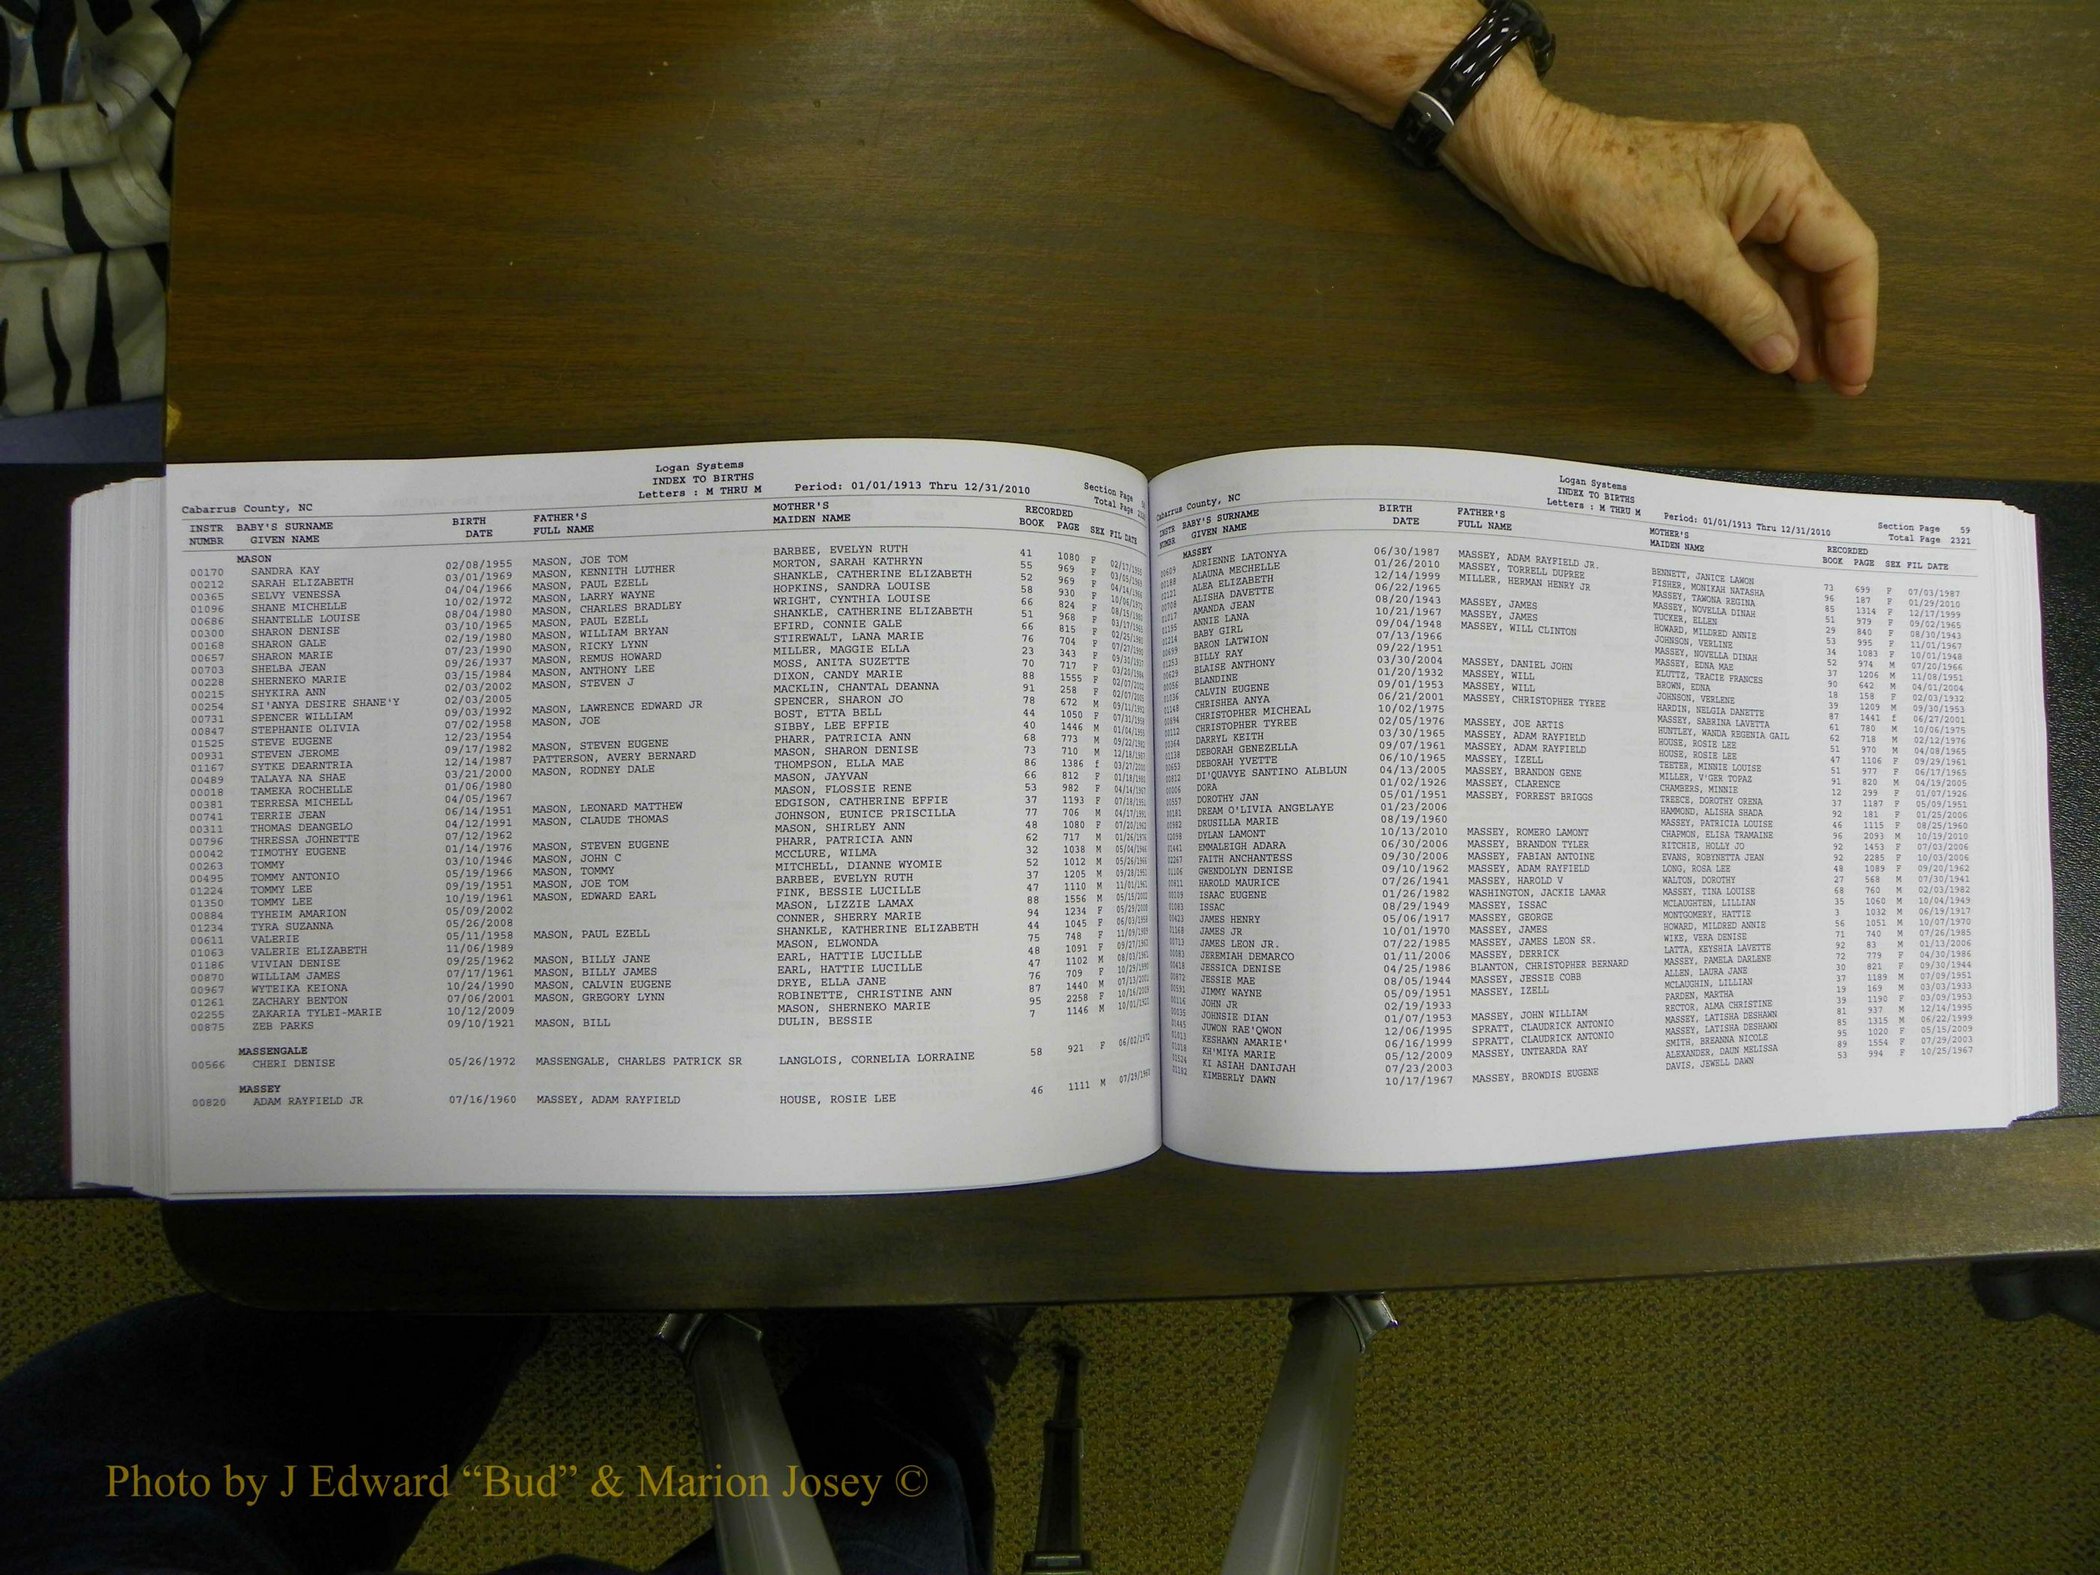 Logan Systems
INDEX TO BIRTHS
Letters : M THRU M Period: 01/01/1913 Thru 12/31/2010
Section Page
Total Page
Cabarrus County, NC
INSTR BABY'S SURNAME BIRTH FATHER'S MOTHER'S RECORDED
NUMBR GIVEN NAME DATE FULL NAME MAIDEN NAME BOOK PAGE SEX FIL DATE
MASON
00170 SANDRA KAY 02/08/1955 MASON, JOE TOM BARBEE, EVELYN RUTH 41 1080 F 02/17/1955
00212 SARAH ELIZABETH 03/01/1969 MASON, KENNITH LUTHER MORTON, SARAH KATHRYN 55 969 F 03/05/1969
00365 SELVY VENESSA 04/04/1966 MASON, PAUL EZELL SHANKLE, CATHERINE ELIZABETH 52 969 F 04/14/1966
01096 SHANE MICHELLE 10/02/1972 MASON, LARRY WAYNE HOPKINS, SANDRA LOUISE 58 930 F 10/06/1972
00686 SHANTELLE LOUISE 08/04/1980 MASON, CHARLES BRADLEY WRIGHT, CYNTHIA LOUISE 66 824 F 08/15/1980
00300 SHARON DENISE 03/10/1965 MASON, PAUL EZELL SHANKLE, CATHERINE ELIZABETH 51 968 F 03/17/1965
00168 SHARON GALE 02/19/1980 MASON, WILLIAM BRYAN EFIRD, CONNIE GALE 66 815 F 02/25/1980
00657 SHARON MARIE 07/23/1990 MASON, RICKY LYNN STIREWALT, LANA MARIE 76 704 F 07/27/1990
00703 SHELBA JEAN 09/26/1937 MASON, REMUS HOWARD MILLER, MAGGIE ELLA 23 343 F 09/30/1937
00228 SHERNEKO MARIE 03/15/1984 MASON, ANTHONY LEE MOSS, ANITA SUZETTE 70 717 F 03/20/1984
00215 SHYKIRA ANN 02/03/2002 MASON, STEVEN J DIXON, CANDY MARIE 88 1555 F 02/07/2002
00254 SI'ANYA DESIRE SHANE'Y 02/03/2005 MACKLIN, CHANTAL DEANNA 91 258 F 02/07/2005
00731 SPENCER WILLIAM 09/03/1992 MASON, LAWRENCE EDWARD JR SPENCER, SHARON JO 78 672 M 09/11/1992
00847 STEPHANIE OLIVIA 07/02/1958 MASON, JOE BOST, ETTA BELL 44 1050 F 07/31/1958
01525 STEVE EUGENE 12/23/1954 SIBBY, LEE EFFIE 40 1446 M 01/04/1955
00931 STEVEN JEROME 09/17/1982 MASON, STEVEN EUGENE PHARR, PATRICIA ANN 68 773 M 09/22/1982
01167 SYTKE DEARNTRIA 12/14/1987 PATTERSON, AVERY BERNARD MASON, SHARON DENISE 73 710 M 12/18/1987
00489 TALAYA NA SHAE 03/21/2000 MASON, RODNEY DALE THOMPSON, ELLA MAE 86 1386 f 03/27/2000
00018 TAMEKA ROCHELLE 01/06/1980 MASON, JAYVAN 66 812 F 01/18/1980
00381 TERRESA MICHELL 04/05/1967 MASON, FLOSSIE RENE 53 982 F 04/14/1967
00741 TERRIE JEAN 06/14/1951 MASON, LEONARD MATTHEW EDGISON, CATHERINE EFFIE 37 1193 F 07/18/1951
00311 THOMAS DEANGELO 04/12/1991 MASON, CLAUDE THOMAS JOHNSON, EUNICE PRISCILLA 77 706 M 04/17/1991
00796 THRESSA JOHNETTE 07/12/1962 MASON, SHIRLEY ANN 48 1080 F 07/20/1962
00042 TIMOTHY EUGENE 01/14/1976 MASON, STEVEN EUGENE PHARR, PATRICIA ANN 62 717 M 01/26/1976
00263 TOMMY 03/10/1946 MASON, JOHN C MCCLURE, WILMA 32 1038 M 05/04/1946
00495 TOMMY ANTONIO 05/19/1966 MASON, TOMMY MITCHELL, DIANNE WYOMIE 52 1012 M 05/26/1966
01224 TOMMY LEE 09/19/1951 MASON, JOE TOM BARBEE, EVELYN RUTH 37 1205 M 09/28/1951
01350 TOMMY LEE 10/19/1961 MASON, EDWARD EARL FINK, BESSIE LUCILLE 47 1110 M 11/01/1961
00884 TYHEIM AMARION 05/09/2002 MASON, LIZZIE LAMAX 88 1556 M 05/15/2002
01234 TYRA SUZANNA 05/26/2008 CONNER, SHERRY MARIE 94 1234 F 05/29/2008
00611 VALERIE 05/11/1958 MASON, PAUL EZELL SHANKLE, KATHERINE ELIZABETH 44 1045 F 06/03/1958
01063 VALERIE ELIZABETH 11/06/1989 MASON, ELWONDA 75 748 F 11/09/1989
01186 VIVIAN DENISE 09/25/1962 MASON, BILLY JANE EARL, HATTIE LUCILLE 48 1091 F 09/27/1962
00870 WILLIAM JAMES 07/17/1961 MASON, BILLY JAMES EARL, HATTIE LUCILLE 47 1102 M 08/03/1961
00967 WYTEIKA KEIONA 10/24/1990 MASON, CALVIN EUGENE DRYE, ELLA JANE 76 709 F 10/29/1990
01261 ZACHARY BENTON 07/06/2001 MASON, GREGORY LYNN ROBINETTE, CHRISTINE ANN 87 1440 M 07/13/2001
02255 ZAKARIA TYLEI-MARIE 10/12/2009 MASON, SHERNEKO MARIE 95 2258 F 10/16/2009
00875 ZEB PARKS 09/10/1921 MASON, BILL DULIN, BESSIE 7 1146 M 10/01/1921
MASSENGALE
00566 CHERI DENISE 05/26/1972 MASSENGALE, CHARLES PATRICK SR LANGLOIS, CORNELIA LORRAINE 58 921 F 06/02/1972
MASSEY
00820 ADAM RAYFIELD JR 07/16/1960 MASSEY, ADAM RAYFIELD HOUSE, ROSIE LEE 46 1111 M 07/29/1960
Logan Systems
INDEX TO BIRTHS
Letters : M THRU M Period: 01/01/1913 Thru 12/31/2010
Section Page 59
Total Page 2321
Cabarrus County, NC
INSTR BABY'S SURNAME BIRTH FATHER'S MOTHER'S RECORDED
NUMBR GIVEN NAME DATE FULL NAME MAIDEN NAME BOOK PAGE SEX FIL DATE
MASSEY
00609 ADRIENNE LATONYA 06/30/1987 MASSEY, ADAM RAYFIELD JR. BENNETT, JANICE LAWON 73 699 F 07/03/1987
00188 ALAUNA MECHELLE 01/26/2010 MASSEY, TORRELL DUPREE FISHER, MONIKAH NATASHA 96 187 F 01/29/2010
02121 ALEA ELIZABETH 12/14/1999 MILLER, HERMAN HENRY JR MASSEY, TAWONA REGINA 85 1314 F 12/17/1999
00708 ALISHA DAVETTE 06/22/1965 MASSEY, NOVELLA DINAH 51 979 F 09/02/1965
01017 AMANDA JEAN 08/20/1943 MASSEY, JAMES TUCKER, ELLEN 29 840 F 08/30/1943
01195 ANNIE LANA 10/21/1967 MASSEY, JAMES HOWARD, MILDRED ANNIE 53 995 F 11/01/1967
01214 BABY GIRL 09/04/1948 MASSEY, WILL CLINTON JOHNSON, VERLINE 34 1083 F 10/01/1948
00699 BARON LATWION 07/13/1966 MASSEY, NOVELLA DINAH 52 974 M 07/20/1966
01253 BILLY RAY 09/22/1951 MASSEY, EDNA MAE 37 1206 M 11/08/1951
00629 BLAISE ANTHONY 03/30/2004 MASSEY, DANIEL JOHN KLUTTZ, TRACIE FRANCES 90 642 M 04/01/2004
00056 BLANDINE 01/20/1932 MASSEY, WILL BROWN, EDNA 18 158 F 02/03/1932
01036 CALVIN EUGENE 09/01/1953 MASSEY, WILL JOHNSON, VERLENE 39 1209 M 09/30/1953
01148 CHRISHEA ANYA 06/21/2001 MASSEY, CHRISTOPHER TYREE HARDIN, NELGIA DANETTE 87 1441 f 06/27/2001
00894 CHRISTOPHER MICHEAL 10/02/1975 MASSEY, SABRINA LAVETTA 61 780 M 10/06/1975
00112 CHRISTOPHER TYREE 02/05/1976 MASSEY, JOE ARTIS HUNTLEY, WANDA REGENIA GAIL 62 718 M 02/12/1976
00364 DARRYL KEITH 03/30/1965 MASSEY, ADAM RAYFIELD HOUSE, ROSIE LEE 51 970 M 04/08/1965
01138 DEBORAH GENEZELLA 09/07/1961 MASSEY, ADAM RAYFIELD HOUSE, ROSIE LEE 47 1106 F 09/29/1961
00653 DEBORAH YVETTE 06/10/1965 MASSEY, IZELL TEETER, MINNIE LOUISE 51 977 F 06/17/1965
00812 DI'QUAVYE SANTINO ALBLUN 04/13/2005 MASSEY, BRANDON GENE MILLER, V'GER TOPAZ 91 820 M 04/19/2005
00006 DORA 01/02/1926 MASSEY, CLARENCE CHAMBERS, MINNIE 12 299 F 01/07/1926
00557 DOROTHY JAN 05/01/1951 MASSEY, FORREST BRIGGS TREECE, DOROTHY ORENA 37 1187 F 05/09/1951
00181 DREAM O'LIVIA ANGELAYE 01/23/2006 HAMMOND, ALISHA SHADA 92 181 F 01/25/2006
00982 DRUSILLA MARIE 08/19/1960 MASSEY, PATRICIA LOUISE 46 1115 F 08/25/1960
02098 DYLAN LAMONT 10/13/2010 MASSEY, ROMERO LAMONT CHAPMON, ELISA TRAMAINE 96 2093 M 10/19/2010
01441 EMMALEIGH ADARA 06/30/2006 MASSEY, BRANDON TYLER RITCHIE, HOLLY JO 92 1453 F 07/03/2006
02267 FAITH ANCHANTESS 09/30/2006 MASSEY, FABIAN ANTOINE EVANS, ROBYNETTA JEAN 92 2285 F 10/03/2006
01106 GWENDOLYN DENISE 09/10/1962 MASSEY, ADAM RAYFIELD LONG, ROSA LEE 48 1089 F 09/20/1962
00811 HAROLD MAURICE 07/26/1941 MASSEY, HAROLD V WALTON, DOROTHY 27 568 M 07/30/1941
00109 ISAAC EUGENE 01/26/1982 WASHINGTON, JACKIE LAMAR MASSEY, TINA LOUISE 68 760 M 02/03/1982
01083 ISSAC 08/29/1949 MASSEY, ISSAC MCLAUGHTEN, LILLIAN 35 1060 M 10/04/1949
00423 JAMES HENRY 05/06/1917 MASSEY, GEORGE MONTGOMERY, HATTIE 3 1032 M 06/19/1917
01168 JAMES JR 10/01/1970 MASSEY, JAMES HOWARD, MILDRED ANNIE 56 1051 M 10/07/1970
00713 JAMES LEON JR. 07/22/1985 MASSEY, JAMES LEON SR. WIKE, VERA DENISE 71 740 M 07/26/1985
00083 JEREMIAH DEMARCO 01/11/2006 MASSEY, DERRICK LATTA, KEYSHIA LAVETTE 92 83 M 01/13/2006
00418 JESSICA DENISE 04/25/1986 BLANTON, CHRISTOPHER BERNARD MASSEY, PAMELA DARLENE 72 779 F 04/30/1986
00872 JESSIE MAE 08/05/1944 MASSEY, JESSIE COBB ALLEN, LAURA JANE 30 821 F 09/30/1944
00591 JIMMY WAYNE 05/09/1951 MASSEY, IZELL MCLAUGHIN, LILLIAN 37 1189 M 07/09/1951
00116 JOHN JR 02/19/1933 PARDEN, MARTHA 19 169 M 03/03/1933
00035 JOHNSIE DIAN 01/07/1953 MASSEY, JOHN WILLIAM RECTOR, ALMA CHRISTINE 39 1190 F 03/09/1953
01445 JUWON RAE'QWON 12/06/1995 SPRATT, CLAUDRICK ANTONIO MASSEY, LATISHA DESHAWN 81 937 M 12/14/1995
01013 KESHAWN AMARIE' 06/16/1999 SPRATT, CLAUDRICK ANTONIO MASSEY, LATISHA DESHAWN 85 1315 M 06/22/1999
01018 KH'MIYA MARIE 05/12/2009 MASSEY, UNTEARDA RAY SMITH, BREANNA NICOLE 95 1020 F 05/15/2009
01524 KI ASIAH DANIJAH 07/23/2003 ALEXANDER, DAUN MELISSA 89 1554 F 07/29/2003
01182 KIMBERLY DAWN 10/17/1967 MASSEY, BROWDIS EUGENE DAVIS, JEWELL DAWN 53 994 F 10/25/1967
Photo by J Edward “Bud” & Marion Josey ©